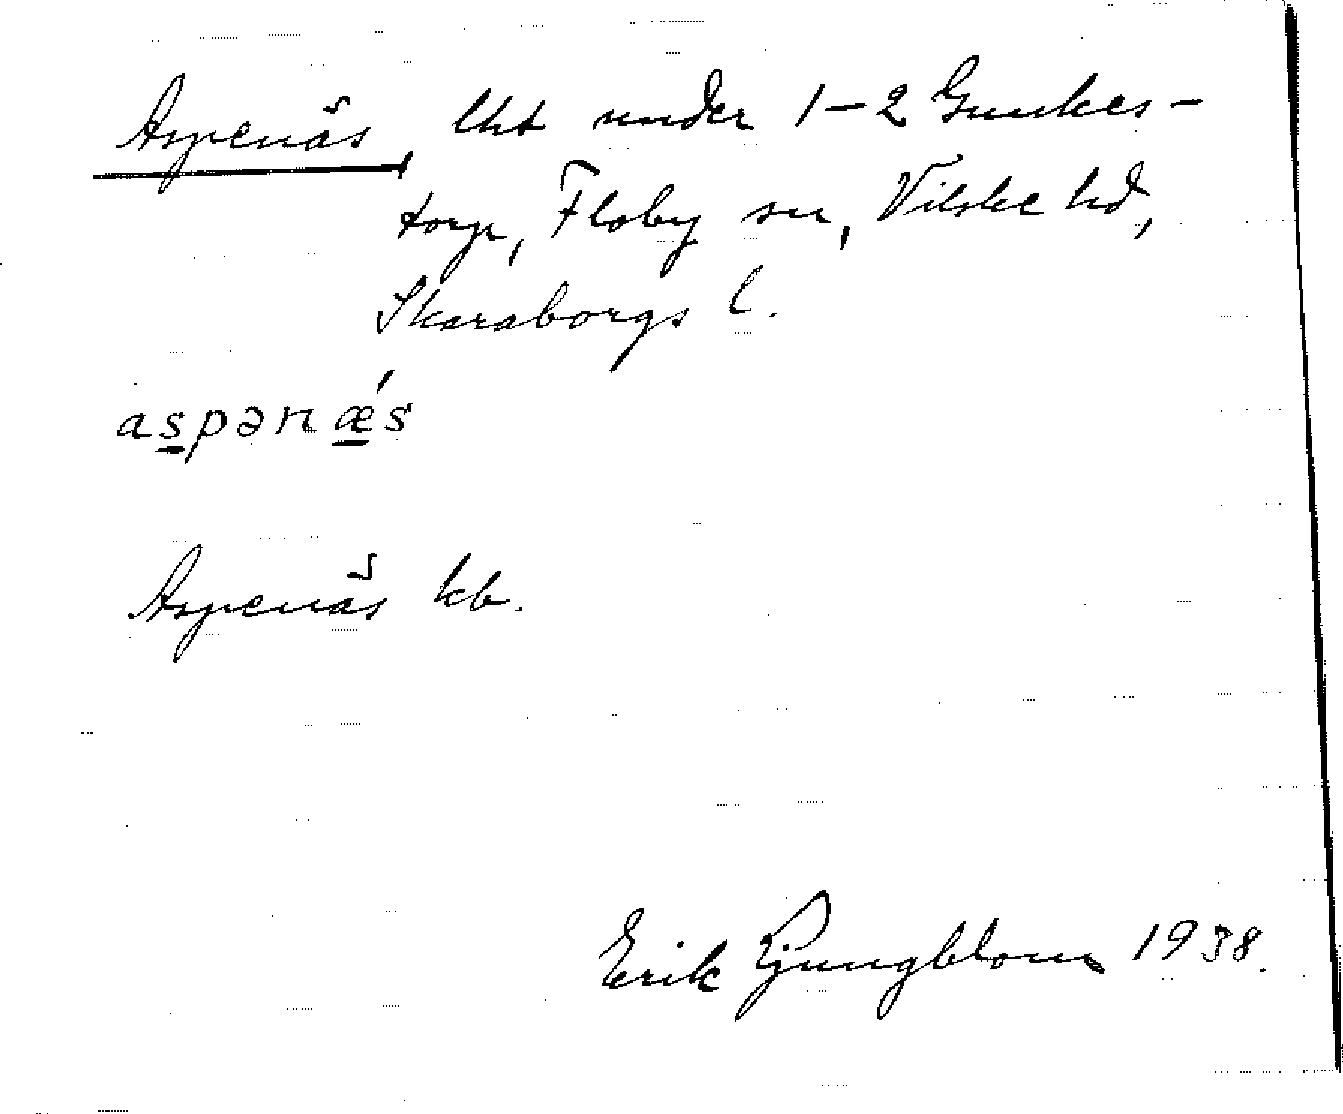 Aspenäs, lht under 1-2 Gunkes-
torp, Floby sn, Vilske hd,
Skaraborgs l.
aspənǽs
Aspenäs kb.
Erik Ljungblom 1938.